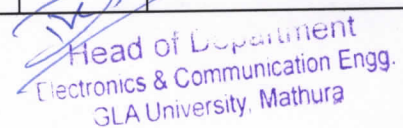 Head of Department
Electronics & Communication Engg.
GLA University, Mathura